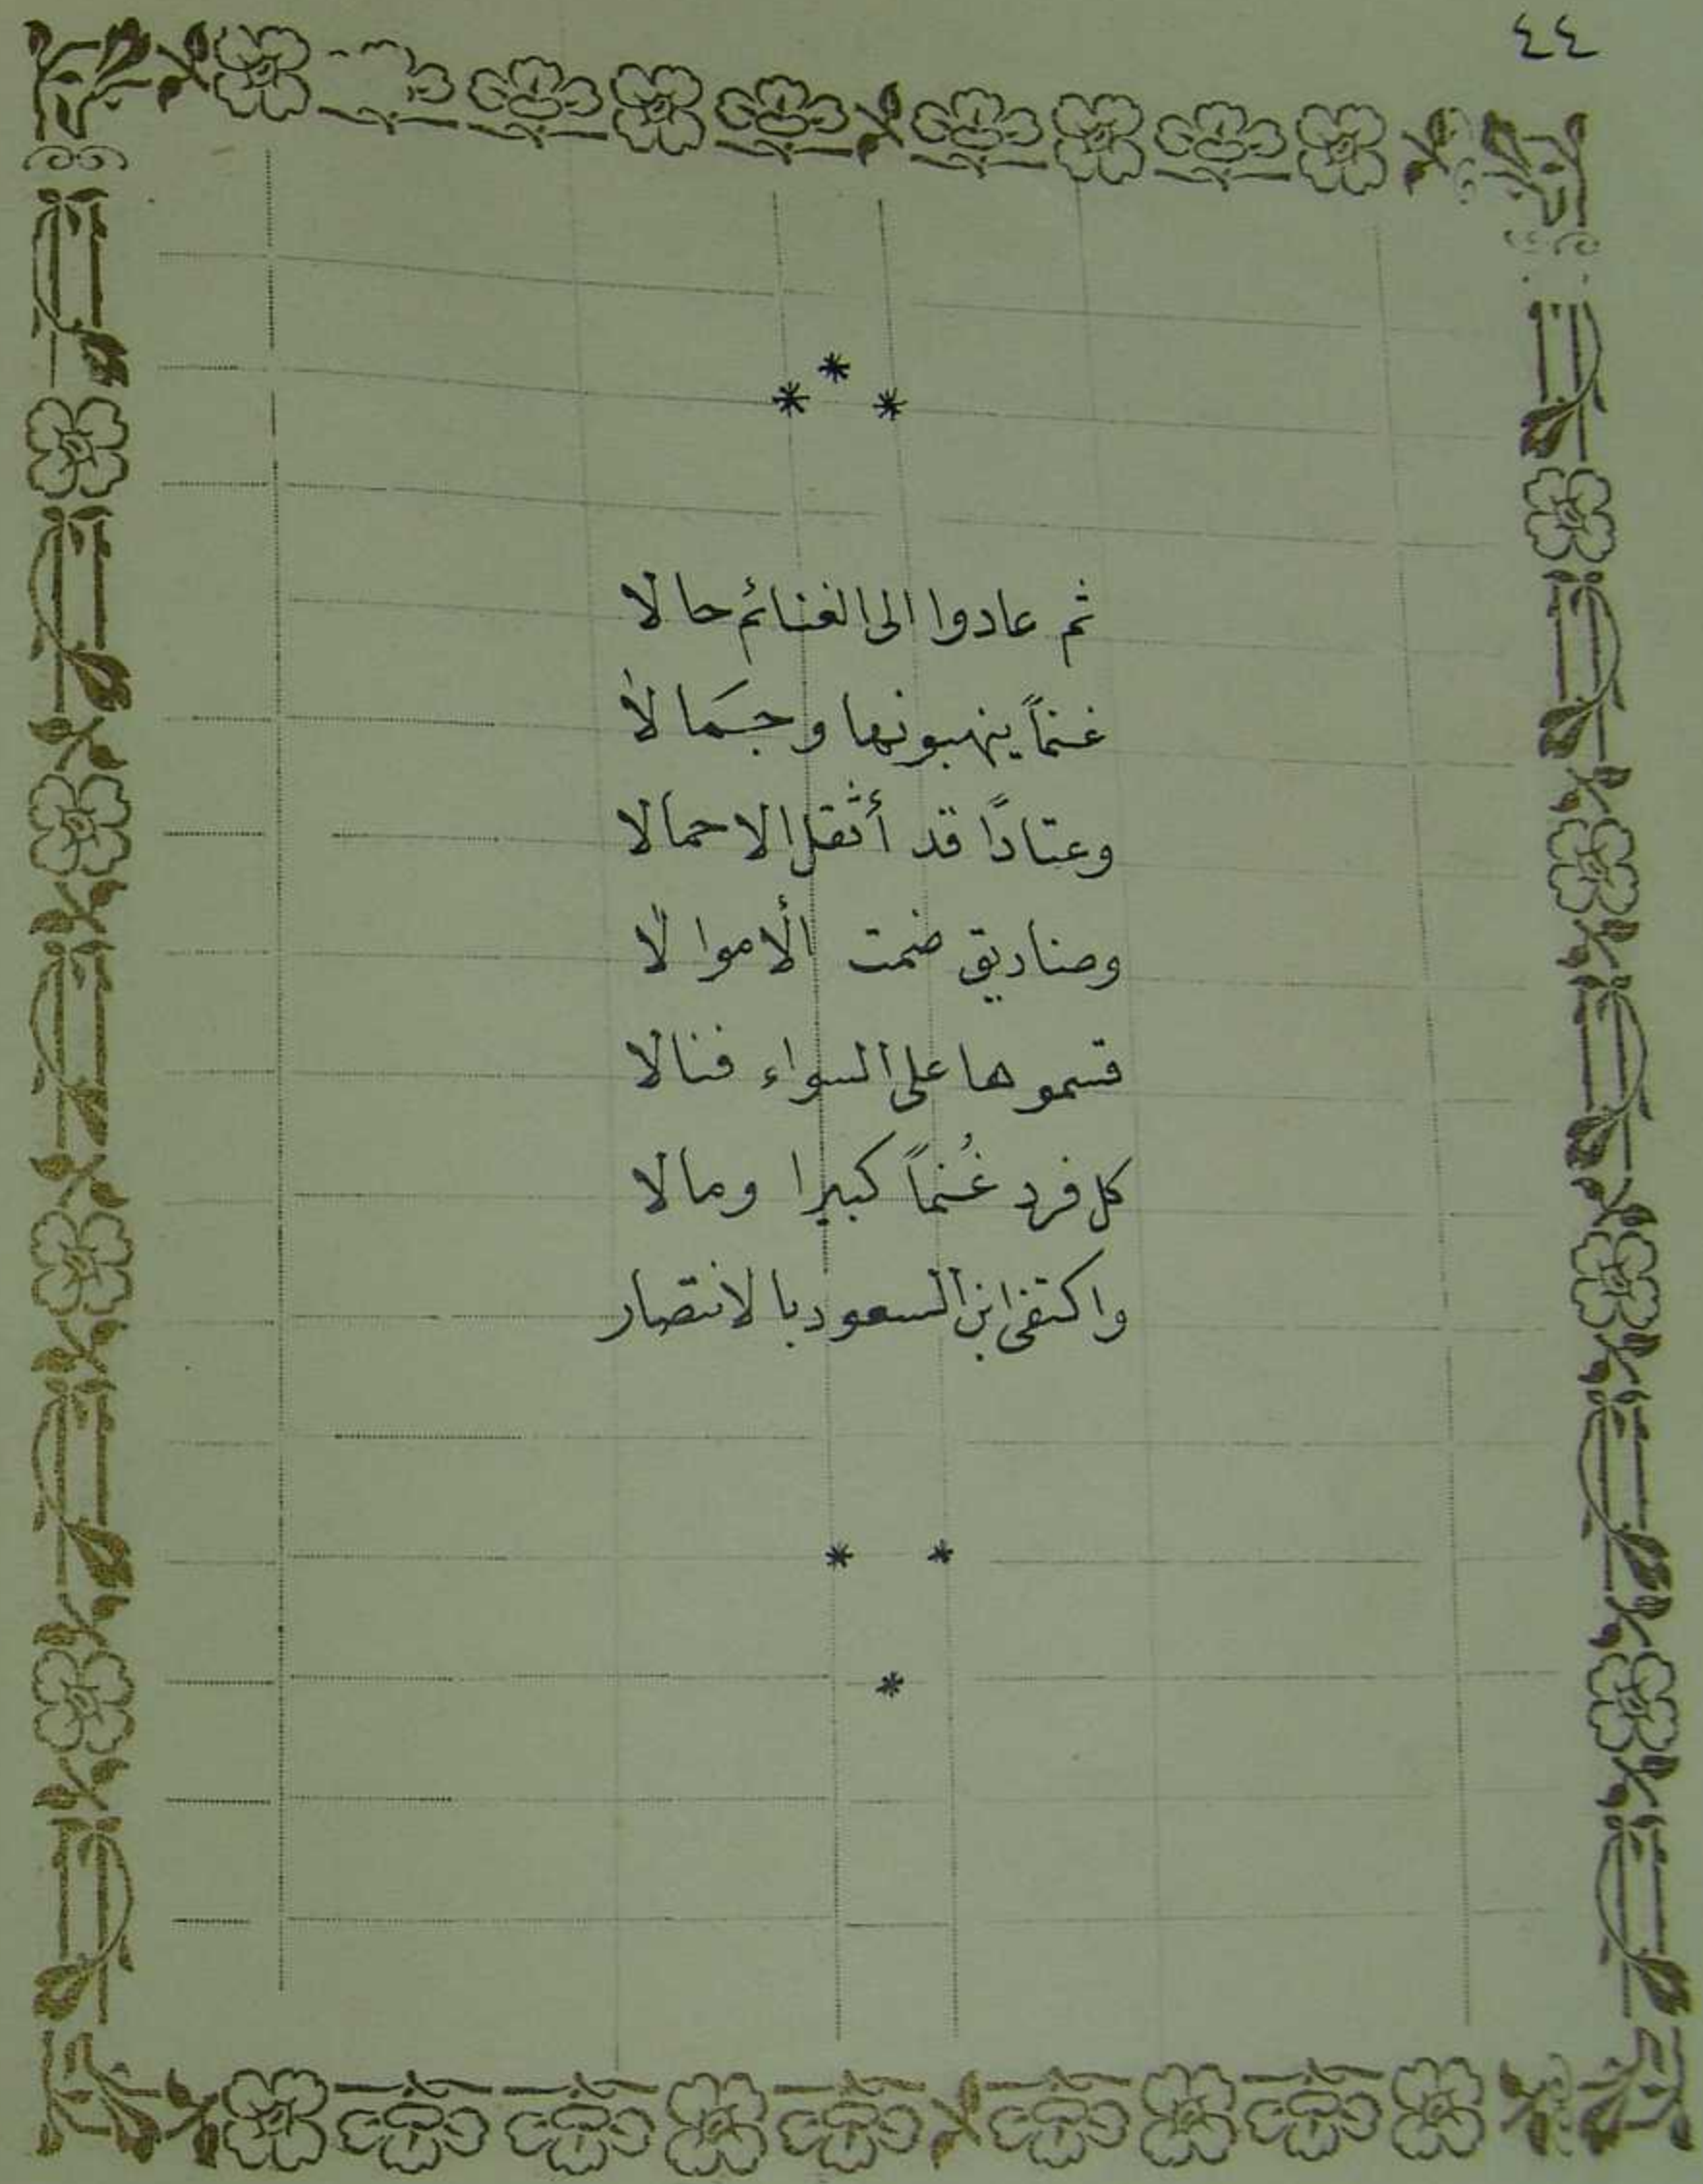 ٤٤
* * *
ثم عادوا الى الغنائم حالا
غنماً ينهبونها وجَمالاً
وعتادًا قد أثقل الاحمالا
وصناديق ضمت الأموالا
قسموها على السواء فنالا
كل فرد غُنماً كبيرا ومالا
واكتفى ابن السعود بالانتصار
* *
*